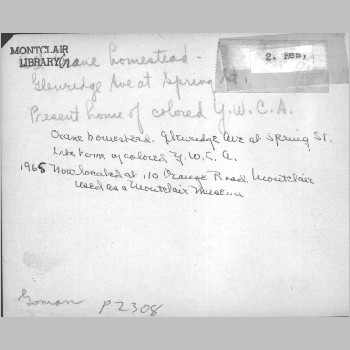 MONTCLAIR
LIBRARY
2. Res,
Crane homestead -
Glenridge Ave at Spring St.
Present home of colored Y.W.C.A.
Crane homestead. Glenridge Ave at Spring St.
home of colored Y.W.C.A.
1965 Now located at 110 Orange Road. Montclair
used as a Montclair Museum
P2308